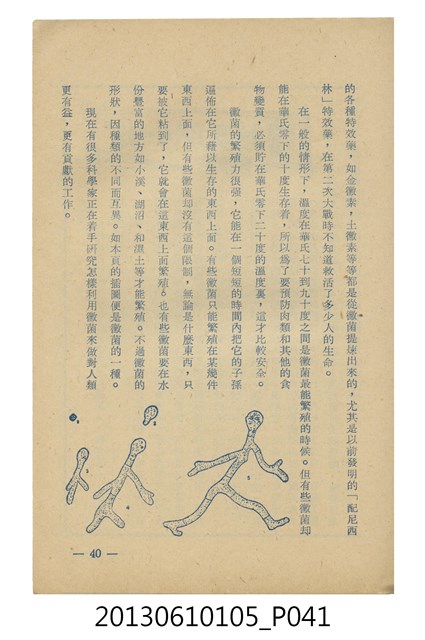 的各種特效藥，如金黴素，土黴素等等都是從黴菌提煉出來的，尤其是以前發明的「配尼西
林」特效藥，在第二次大戰時不知道救活了多少人的生命。
在一般的情形下，溫度在華氏七十到九十度之間是黴菌最能繁殖的時候。但有些黴菌却
能在華氏零下的十度生存着，所以爲了要預防肉類和其他的食
物變質，必須貯在華氏零下二十度的溫度裏，這才比較安全。
黴菌的繁殖力很强，它能在一個短短的時間內把它的子孫
遍佈在它所藉以生存的東西上面。有些黴菌只能繁殖在某幾件
東西上面，但有些黴菌却沒有這個限制，無論是什麼東西，只
要被它粘到了，它就會在這東西上面繁殖。也有些黴菌要在水
份豐富的地方如小溪、湖沼、和濕土等才能繁殖。不過黴菌的
形狀，因種類的不同而互異。如本頁的插圖便是黴菌的一種。
現在有很多科學家正在着手研究怎樣利用黴菌來做對人類
更有益，更有貢獻的工作。
— 40 —
20130610105_P041